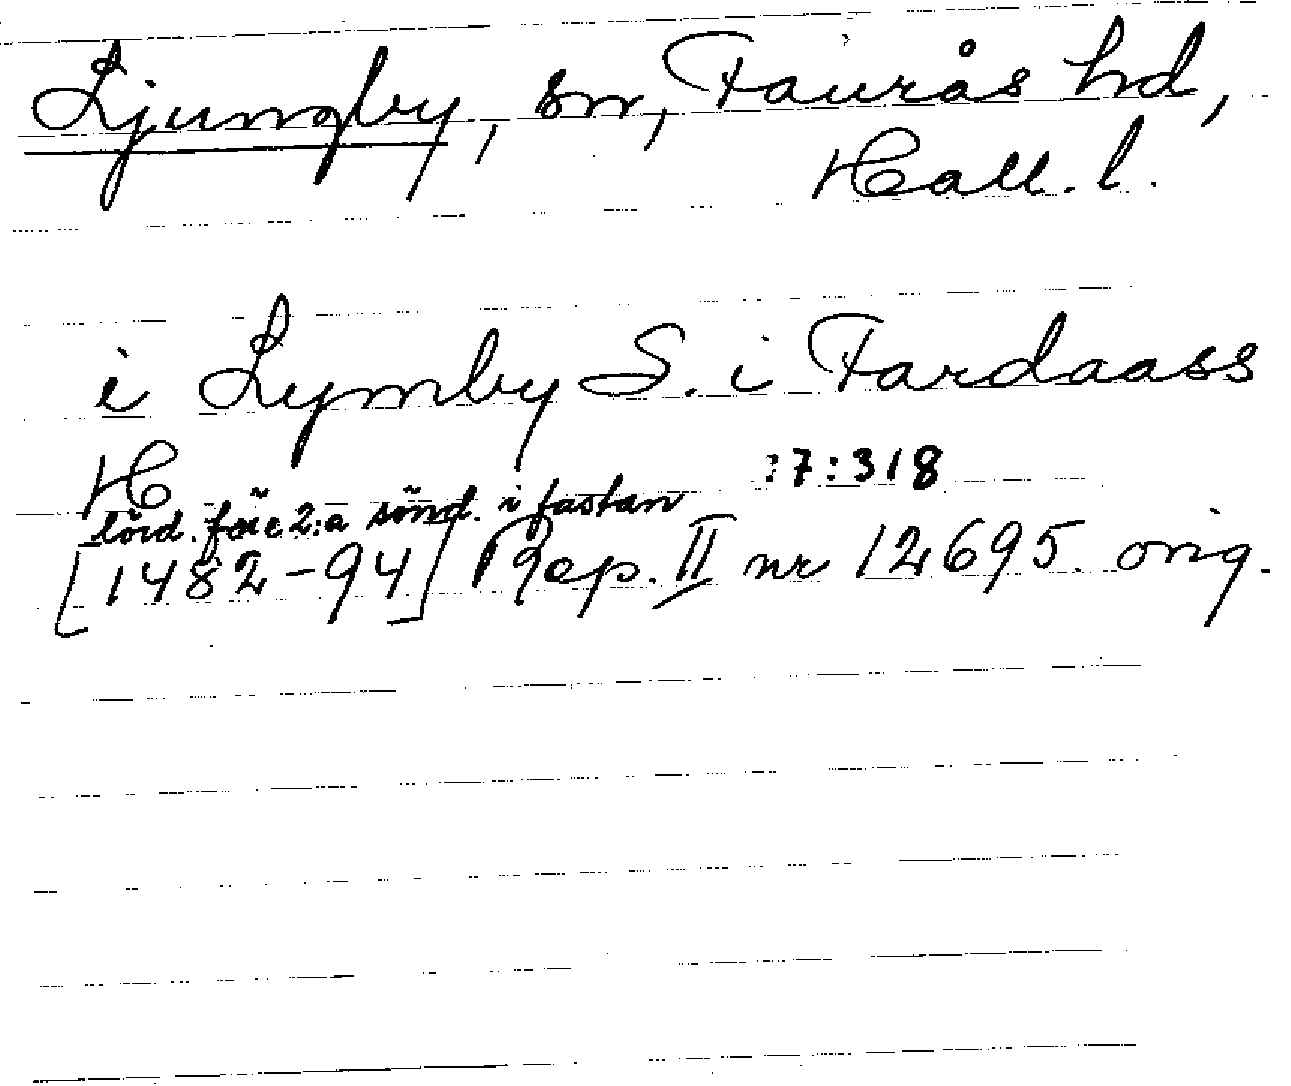 Ljungby, sn, Faurås hd,
Hall. l.
i Lymby S. i Fardaass
H :7:318
lörd. före 2:a sönd. i fastan
[1482-94] Rep. II nr 12695 orig.